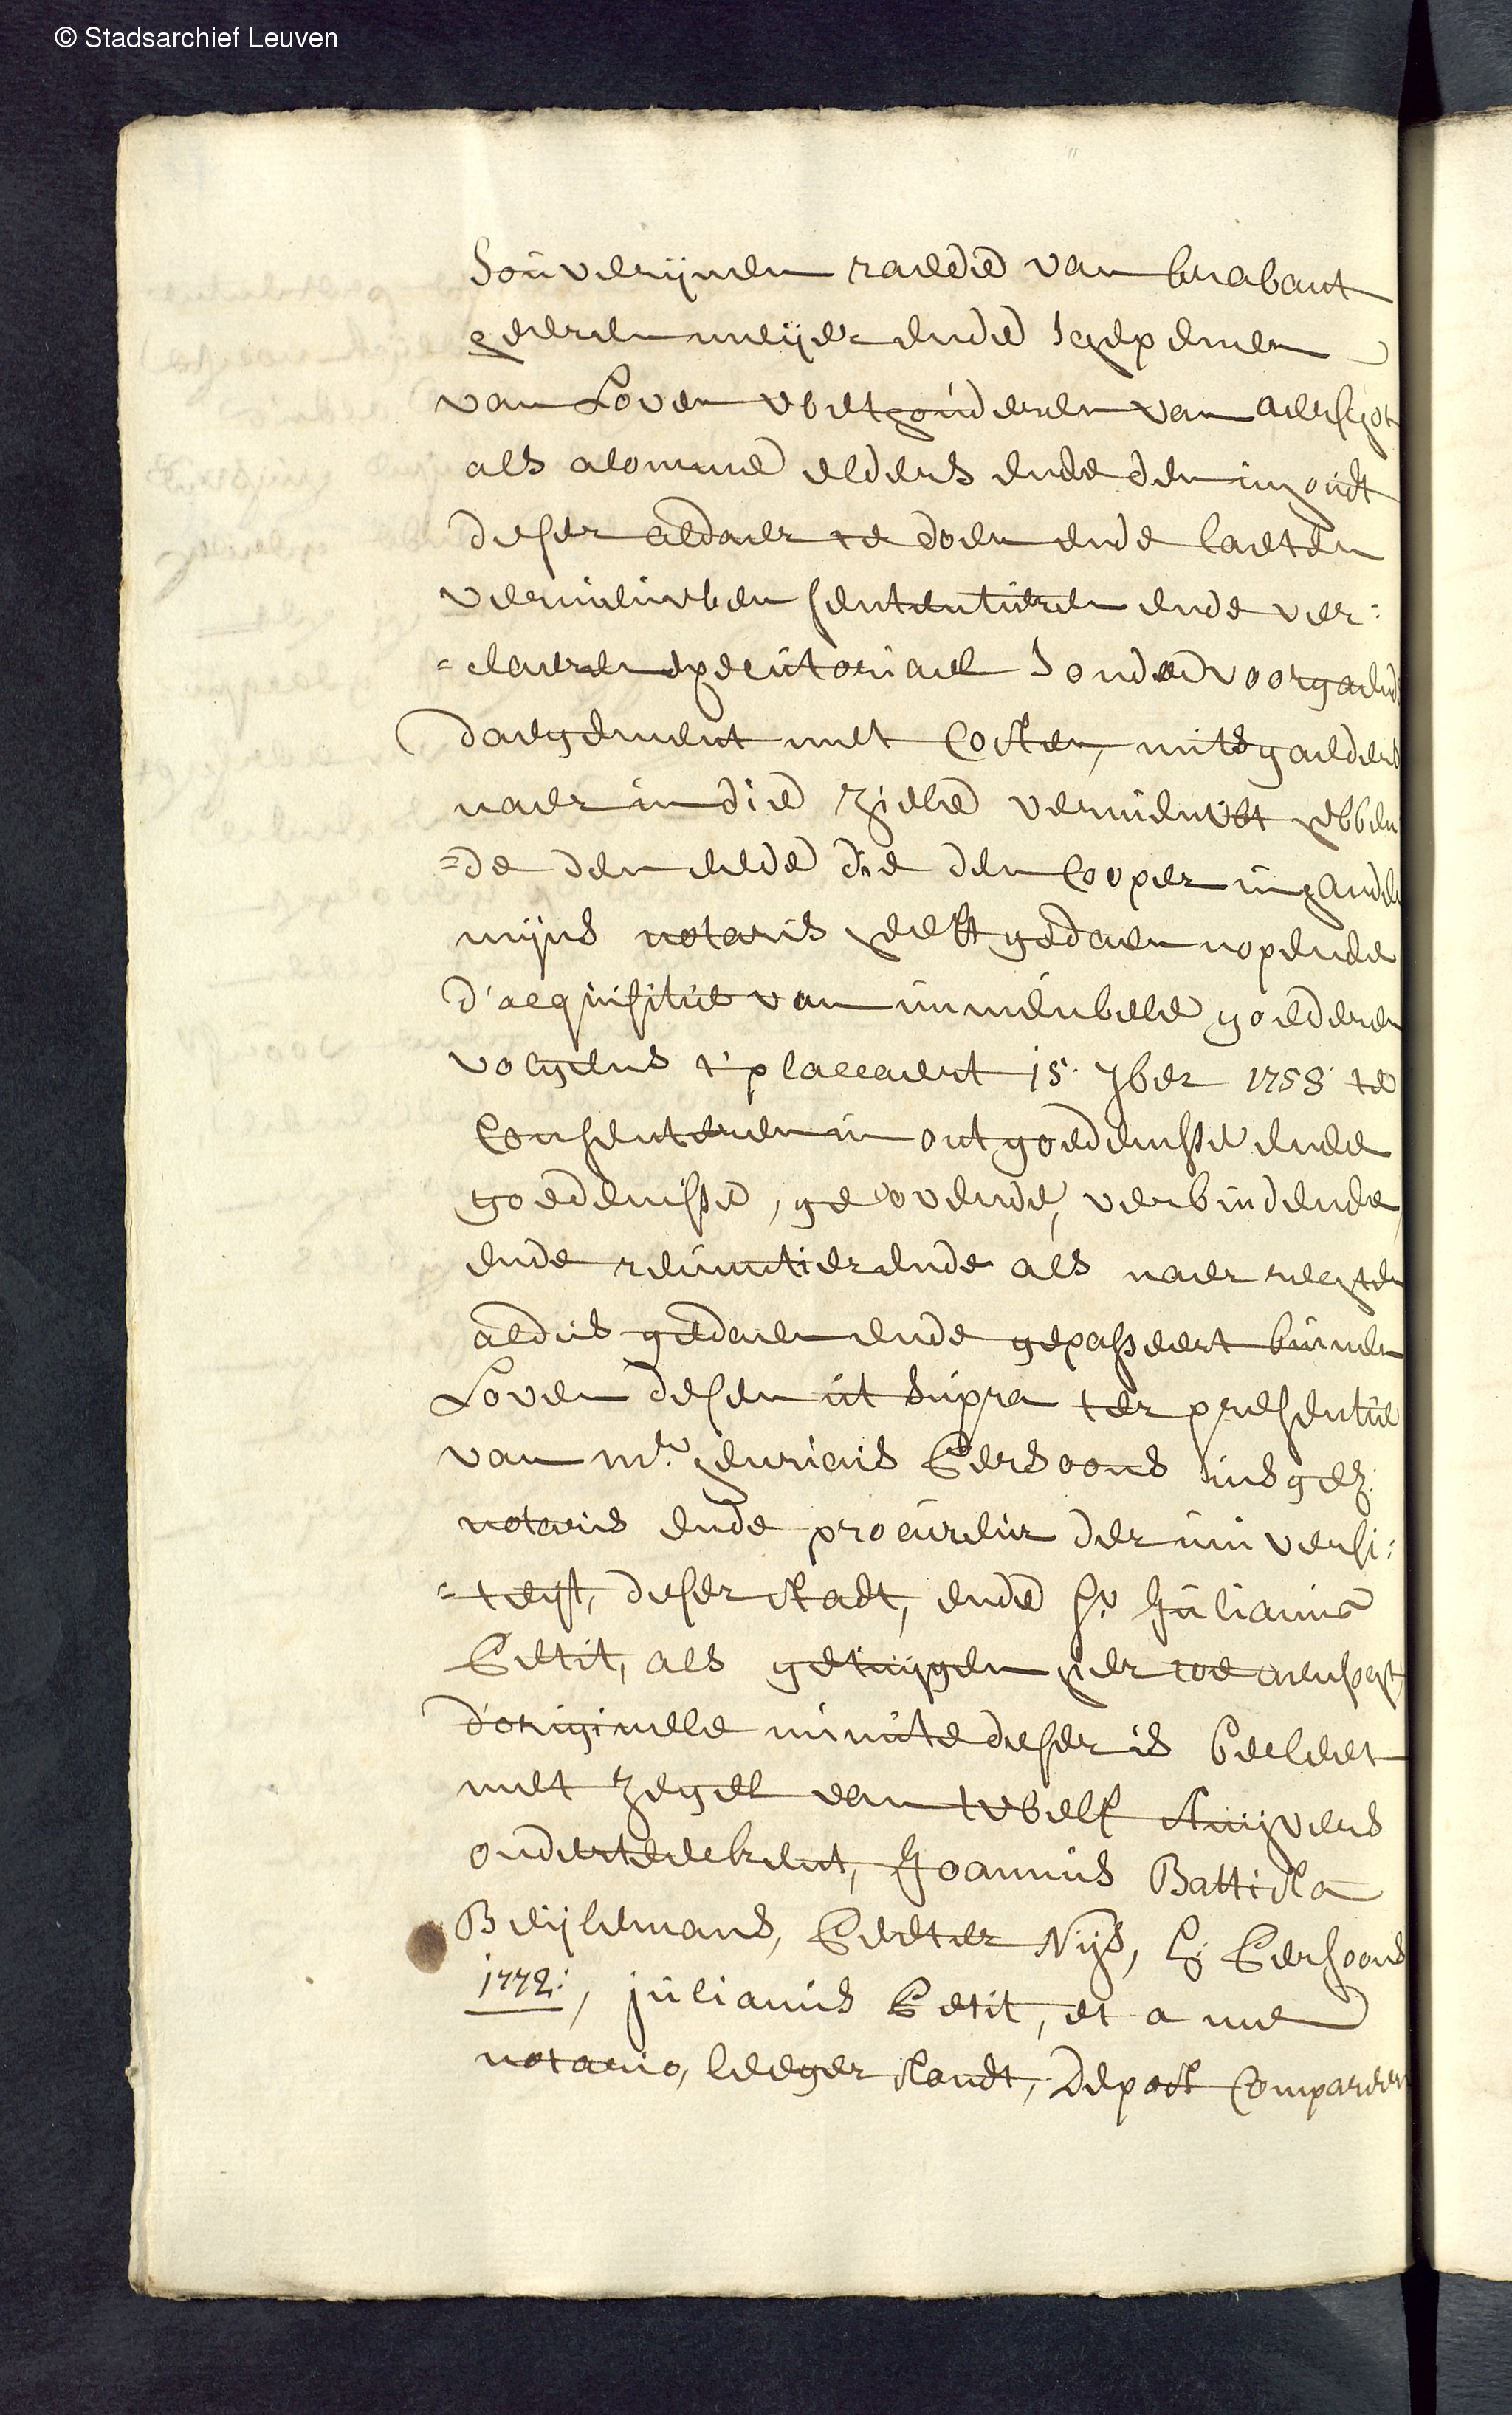 © Stadsarchief Leuven
Souverijnen raede van brabant
heeren meijer ende schepenen
van Loven voethouderen van aerschot
als alomme elders ende den inhoudt
deser aldaer te doen ende laeten
vernieuwen sententieren ende ver:
=claeren executoriael sonder voorgaende
daegement met Costen, mitsgaeders
naer in die ziele vernieuwt hebben
=de den eede die den Cooper in handen
mijns notaris heeft gedaen nopende
d'acquisitie van immeubele goederen
volgens t'placcaert 15. 7ber 1753 te
Consenteren in ontgoedenisse ende
goedenisse, gelovende, verbindende,
ende renuntierende als naer rechten
aldus gedaen ende gepasseert binnen
Loven desen ut supra ter presentie
van mr. henricus Persoons insgel:
notaris ende procureur der universi:
=teyt, deser stadt, ende sr. Julianus
Petit, als getuygen hier toe aensocht,
d'originele minute deser is becleet
met zegel van twelf stuyvers
onderteekent, Joannis Battista
Beijlemans, Peeter Nijs, H: Persoons
1772:, julianus Petit, et a me
notario, leeger stondt, Depost Compareer